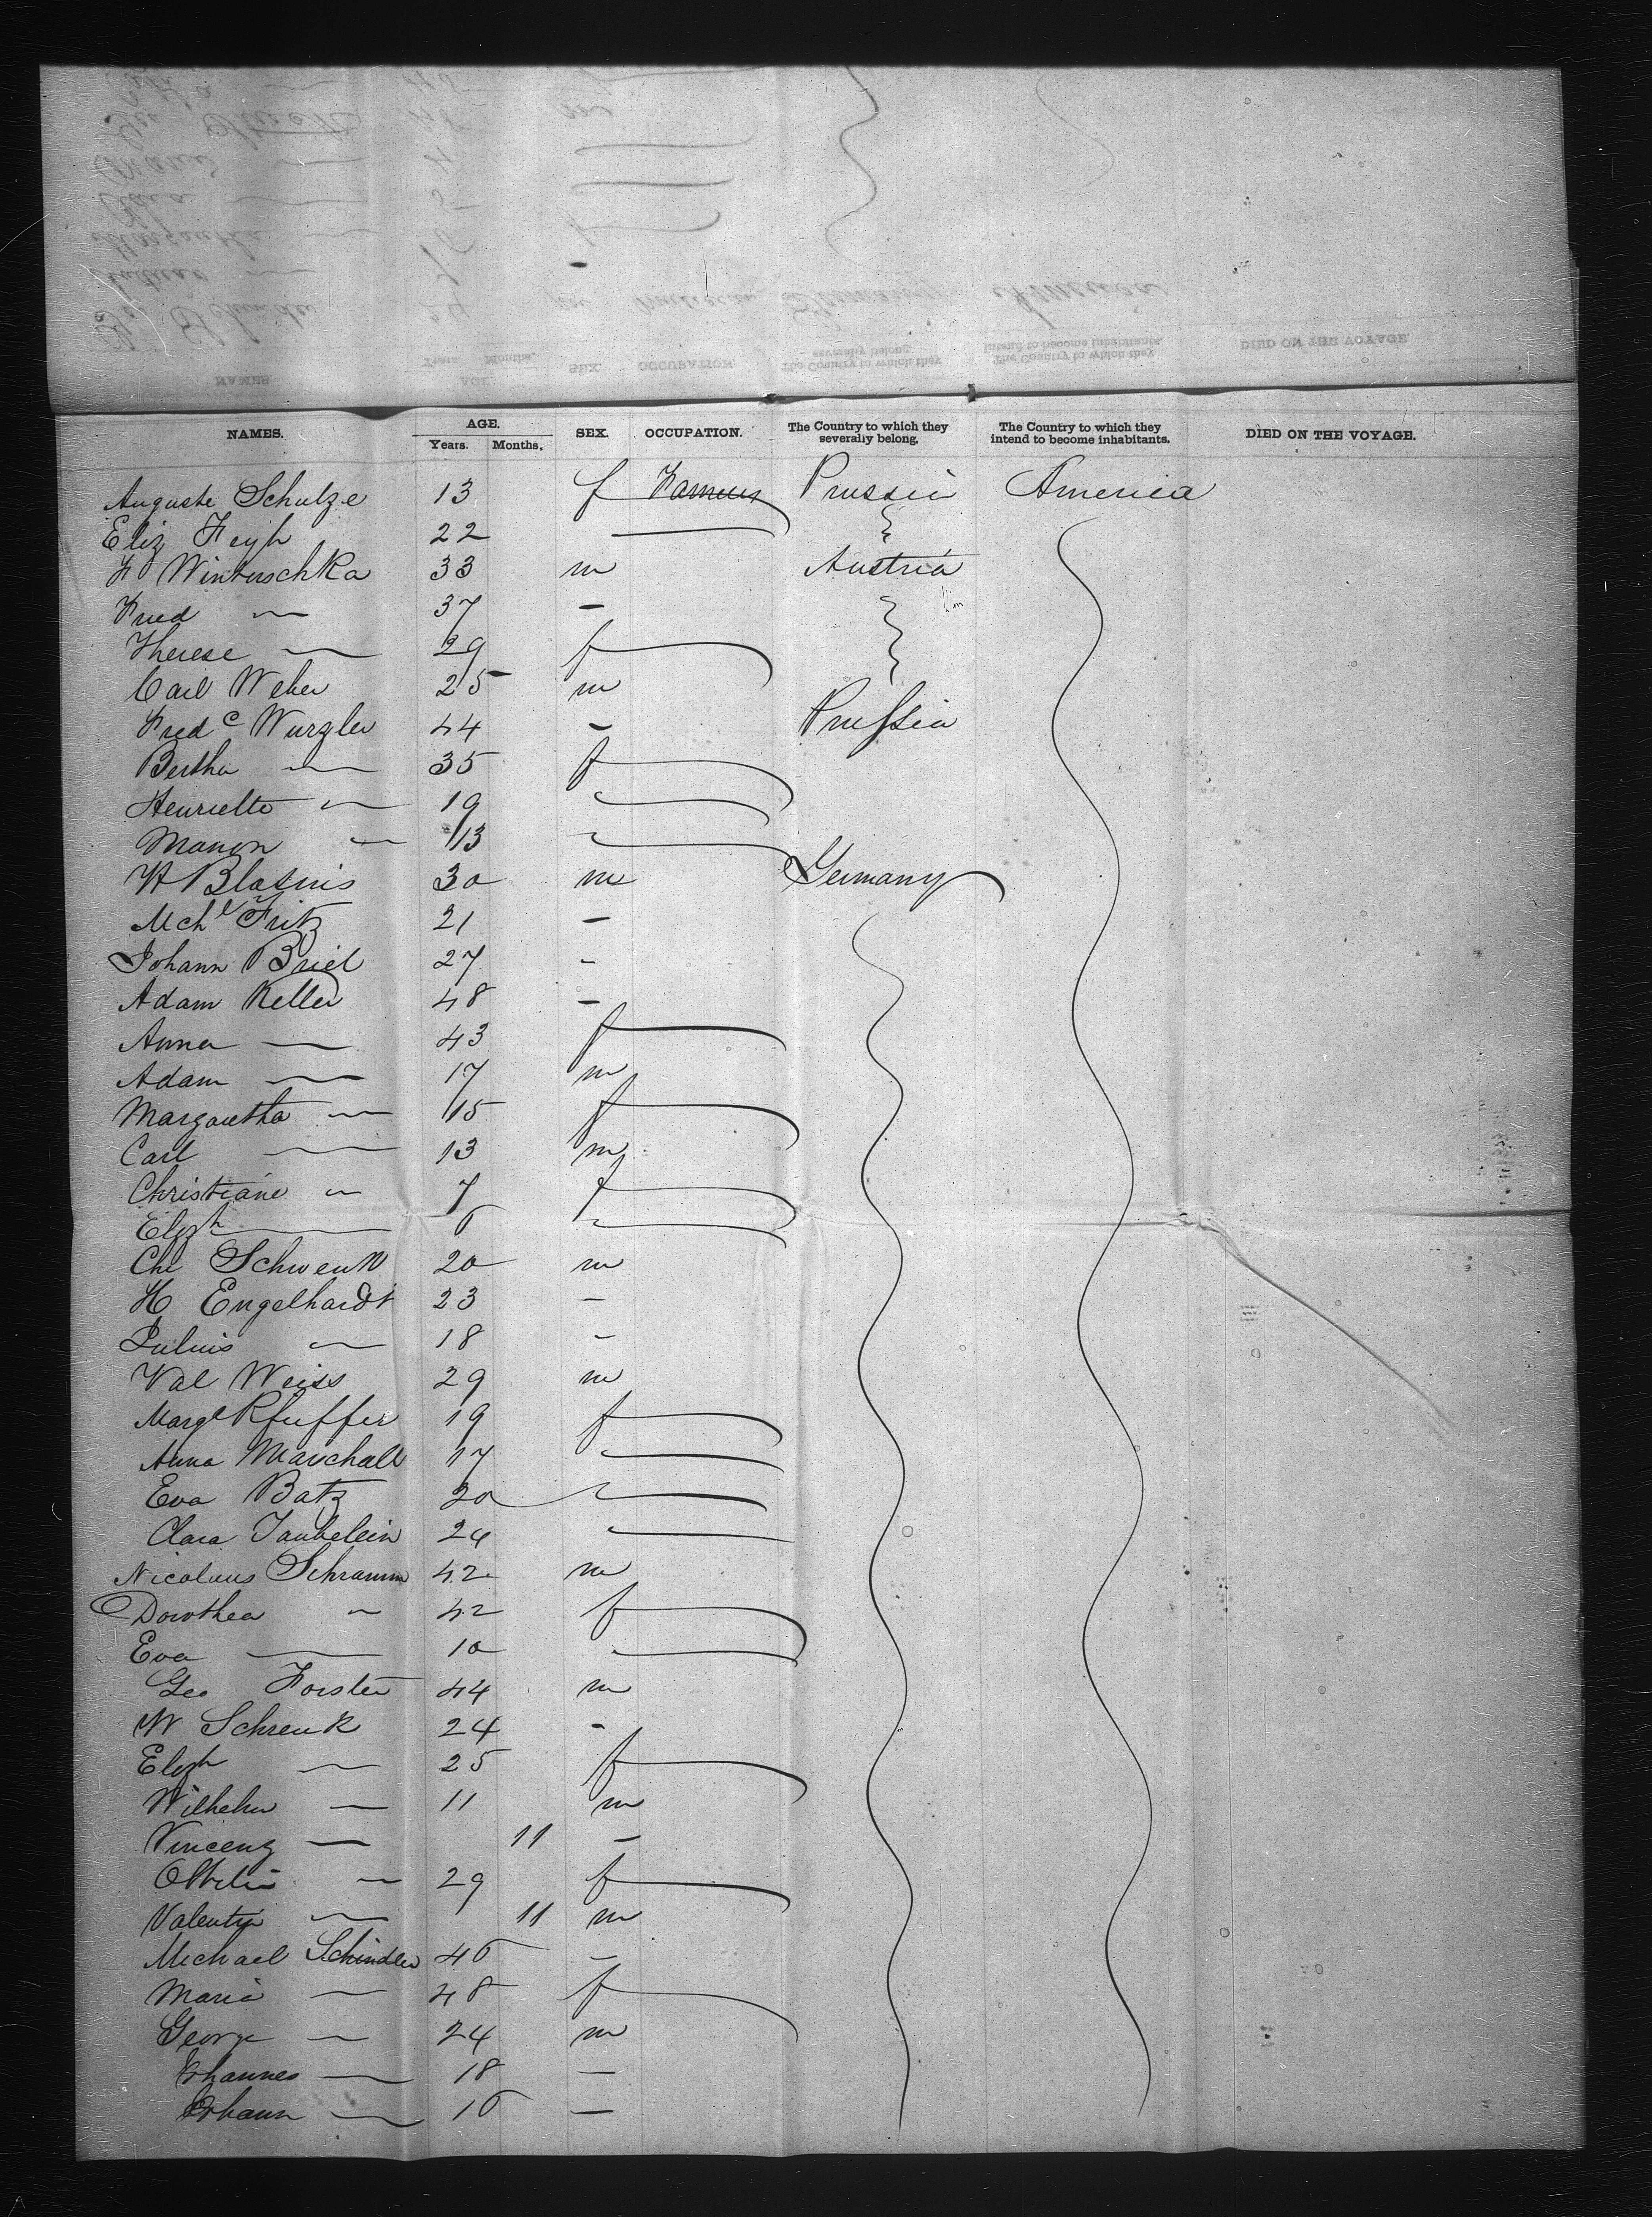 NAMES. AGE. Years. Months. SEX. OCCUPATION. The Country to which they severally belong. The Country to which they intend to become inhabitants. DIED ON THE VOYAGE.
Auguste Schulze 13 f Prussia America
Eliz Feyh 22
F Winterschka 33 m Austria
Fred — 37 —
Therese — 29 f
Carl Weber 25 m
Fred c Wurzler 44 — Prussia
Bertha — 35 f
Henriette — 19
Manon — 13
H Blasius 30 m Germany
Mchl Fritz 21 —
Johann Briel 27 —
Adam Keller 48 —
Anna — 43 f
Adam — 17 m
Margaretha — 15 f
Carl — 13 m
Christiane — 7 f
Elizh — 6
Chr Schwenk 20 m
H Engelhardt 23 —
Julius — 18 —
Val Weiss 29 m
Margt Pfeuffer 19 f
Anna Marschall 17
Eva Batz 20
Clara Taubelein 24
Nicolaus Schramm 42 m
Dorothea " 42 f
Eva — 10
Geo Forster 44 m
W Schrenk 24 -
Elizh — 25 f
Wilhelm — 11 m
Vincenz — 11 —
Ottilie — 29 f
Valentin — 11 m
Michael Schindler 46 —
Maria — 48 f
George — 24 m
Johannes — 18 —
Johann — 16 —